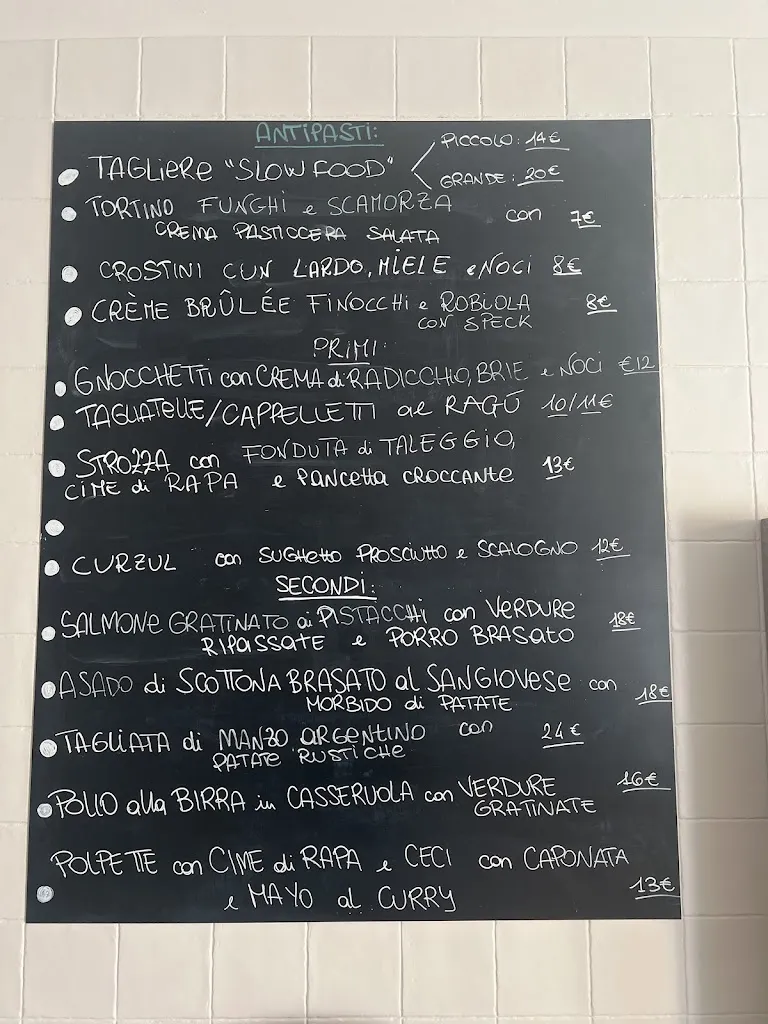 ANTIPASTI:
TAGLIERE "SLOW FOOD" PICCOLO: 14€
GRANDE: 20€
TORTINO FUNGHI e SCAMORZA con 7€
CREMA PASTICCERA SALATA
CROSTINI CUN LARDO, MIELE e NOCI 8€
CRÈME BRÛLÉE FINOCCHI e ROBIOLA 8€
CON SPECK
PRIMI:
GNOCCHETTI con CREMA di RADICCHIO, BRIE e NOCI €12
TAGLIATELLE/CAPPELLETTI al RAGÙ 10/11€
STROZZA con FONDUTA di TALEGGIO,
CIME di RAPA e PANCETTA CROCCANTE 13€
CURZUL con SUGHETTO PROSCIUTTO e SCALOGNO 12€
SECONDI:
SALMONE GRATINATO ai PISTACCHI con VERDURE 18€
RIPASSATE e PORRO BRASATO
ASADO di SCOTTONA BRASATO al SANGIOVESE con 18€
MORBIDO di PATATE
TAGLIATA di MANZO ARGENTINO con 24€
PATATE RUSTICHE
POLLO alla BIRRA in CASSERUOLA con VERDURE 16€
GRATINATE
POLPETTE con CIME di RAPA e CECI con CAPONATA
e MAYO al CURRY 13€